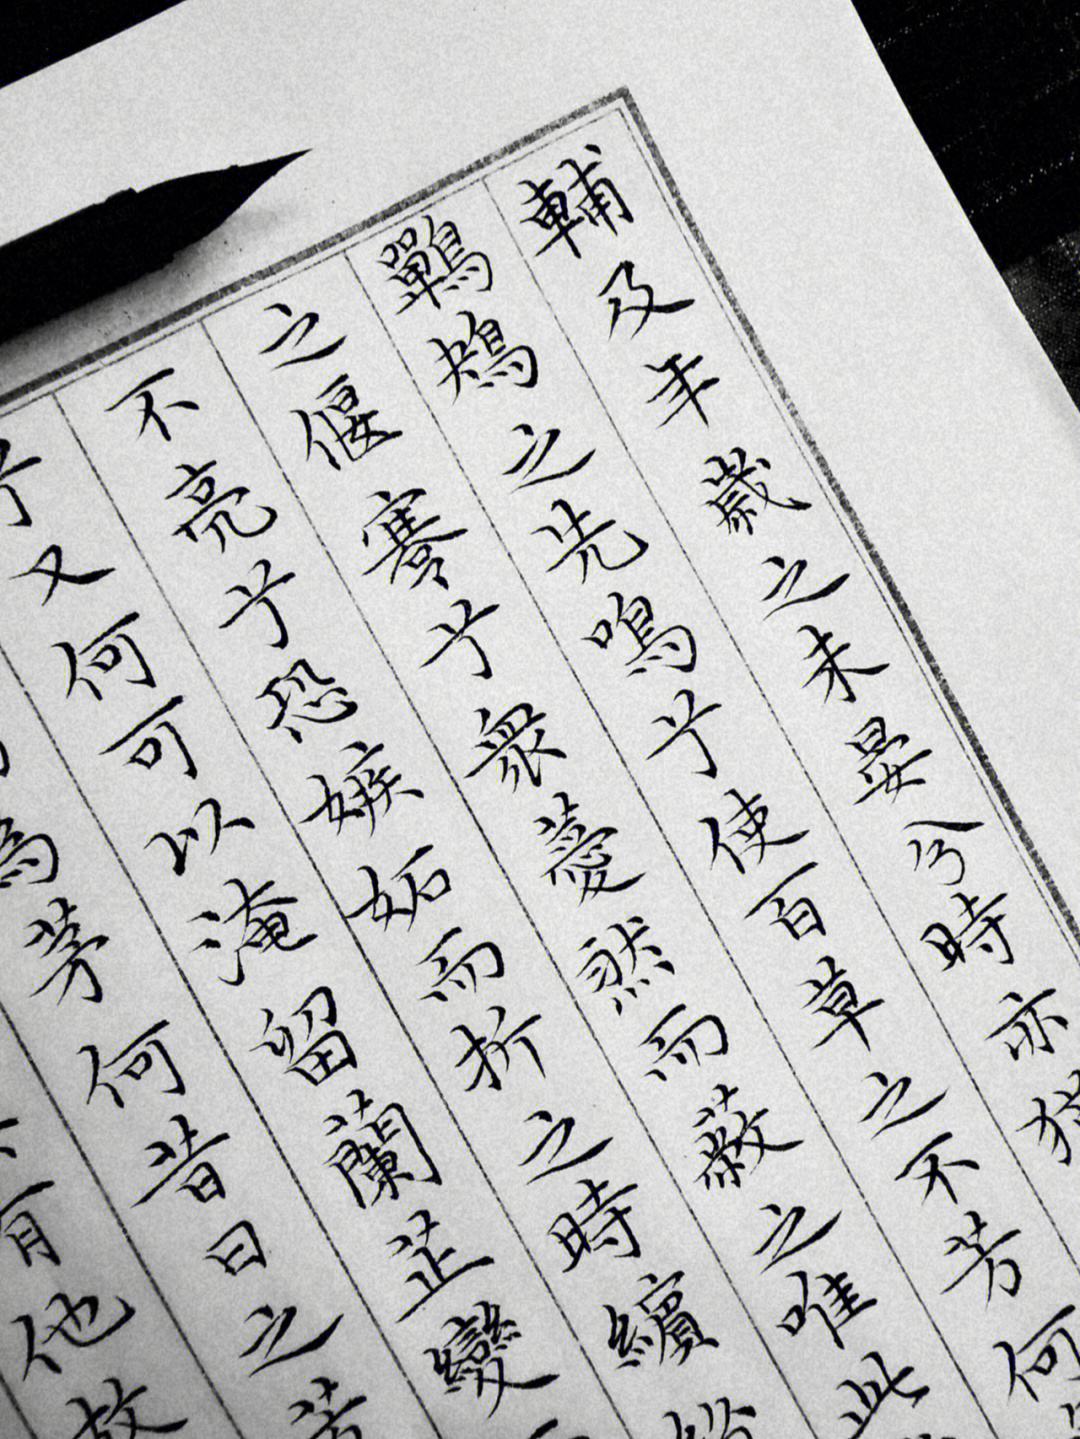 輔及年歲之未晏兮時亦猶
鷤鴂之先鳴兮使百草之不芳何
之偃蹇兮衆薆然而蔽之唯此
不亮兮恐嫉妬而折之時繽紛
兮又何可以淹留蘭芷變
爲茅何昔日之芳
有他故